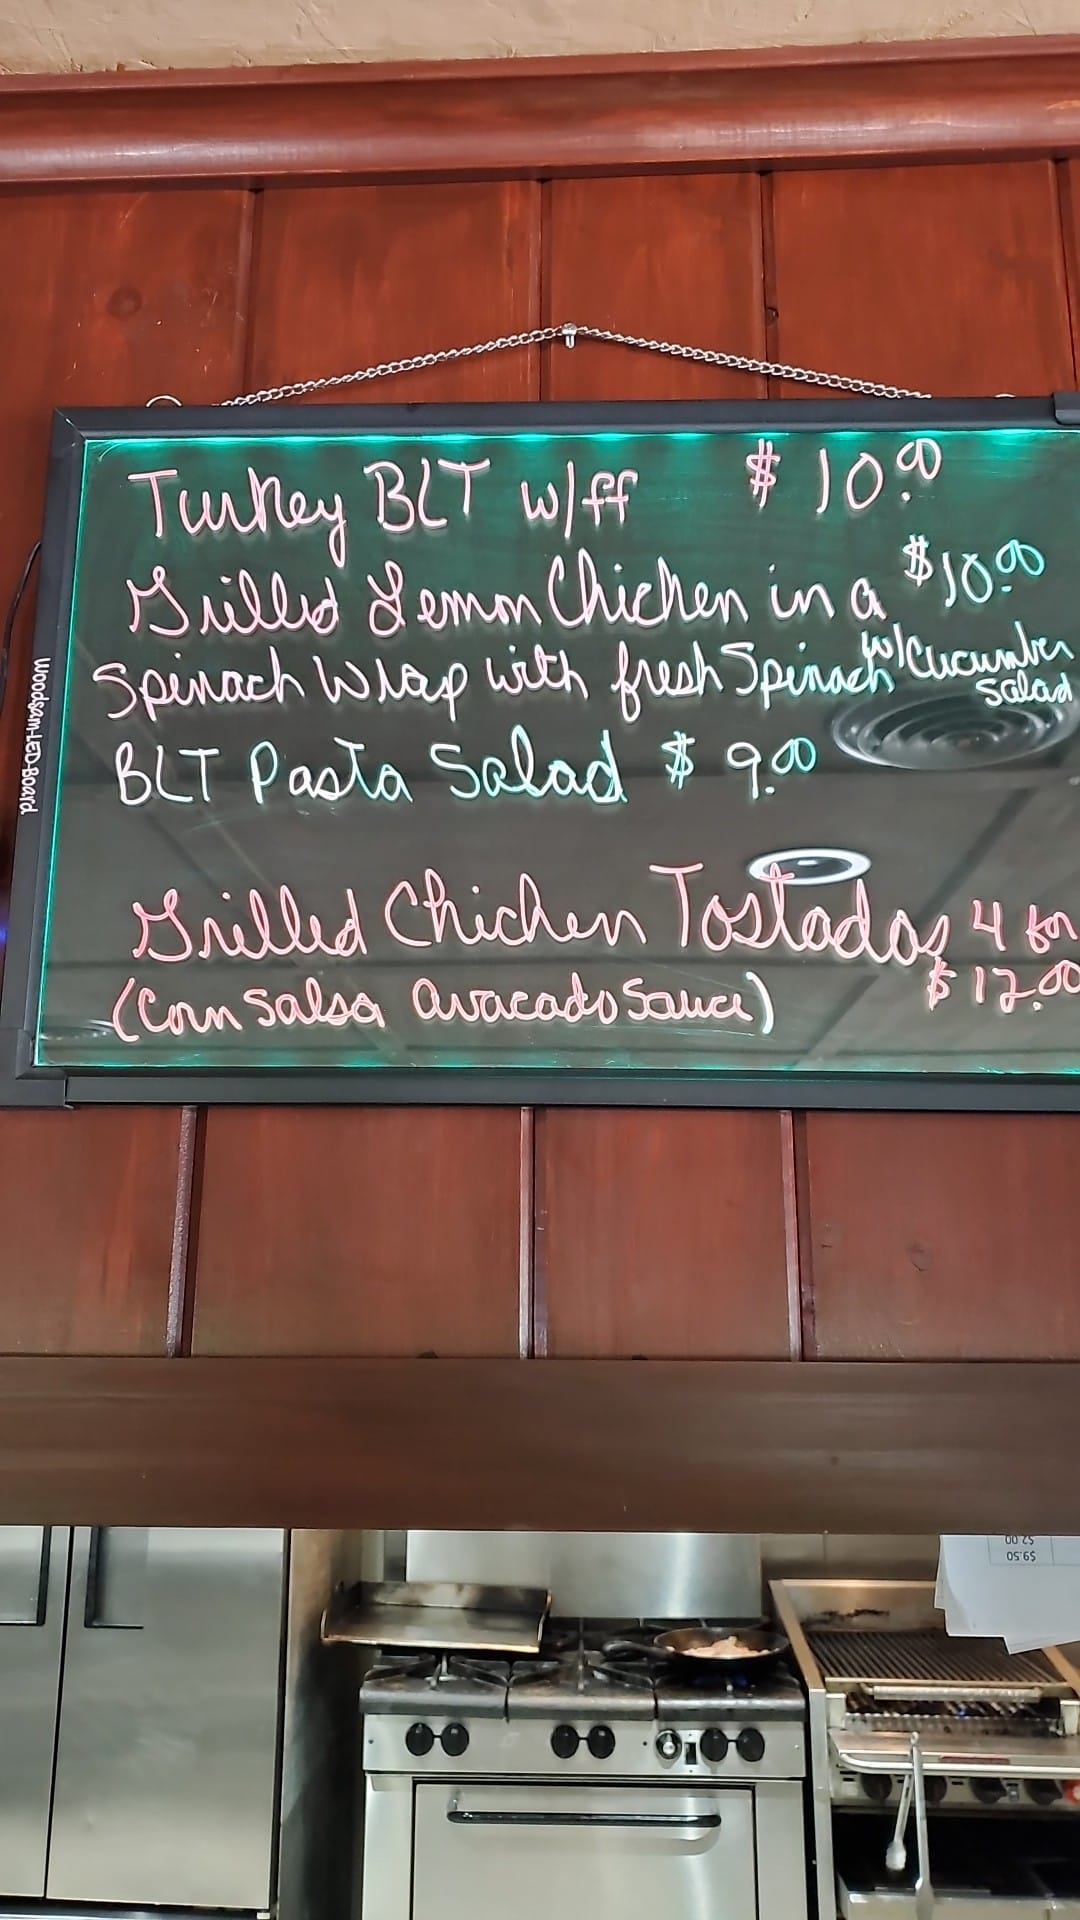 Turkey BLT w/ff $10.00
Grilled Lemon Chicken in a $10.00
Spinach Wrap with fresh Spinach w/Cucumber
Salad
BLT Pasta Salad $9.00
Grilled Chicken Tostadas 4 for
(Corn Salsa Avacado Sauce) $12.00
Woodsam-LED-Board
$2.00
$9.50